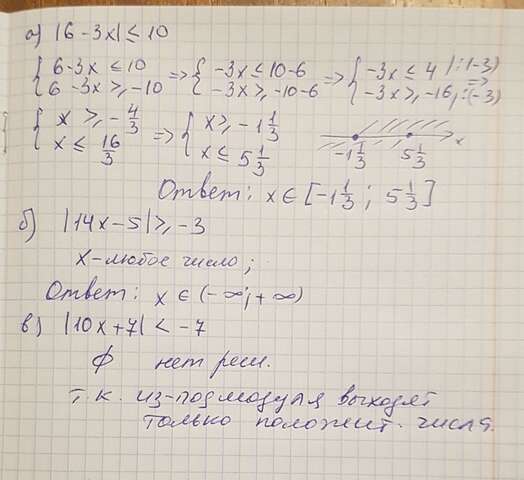 а) |6-3x| ≤ 10
{ 6-3x ≤ 10 => { -3x ≤ 10-6 => { -3x ≤ 4 |:(-3)
{ 6-3x ≥ -10 { -3x ≥ -10-6 { -3x ≥ -16 |:(-3) =>
{ x ≥ -4/3 => { x ≥ -1 1/3
{ x ≤ 16/3 { x ≤ 5 1/3
-1 1/3 5 1/3 x
Ответ: x ∈ [-1 1/3; 5 1/3]
б) |14x-5| ≥ -3
x-любое число;
Ответ: x ∈ (-∞;+∞)
в) |10x+7| < -7
∅ нет реш.
т.к. из-под модуля выходят
только положит. числа.